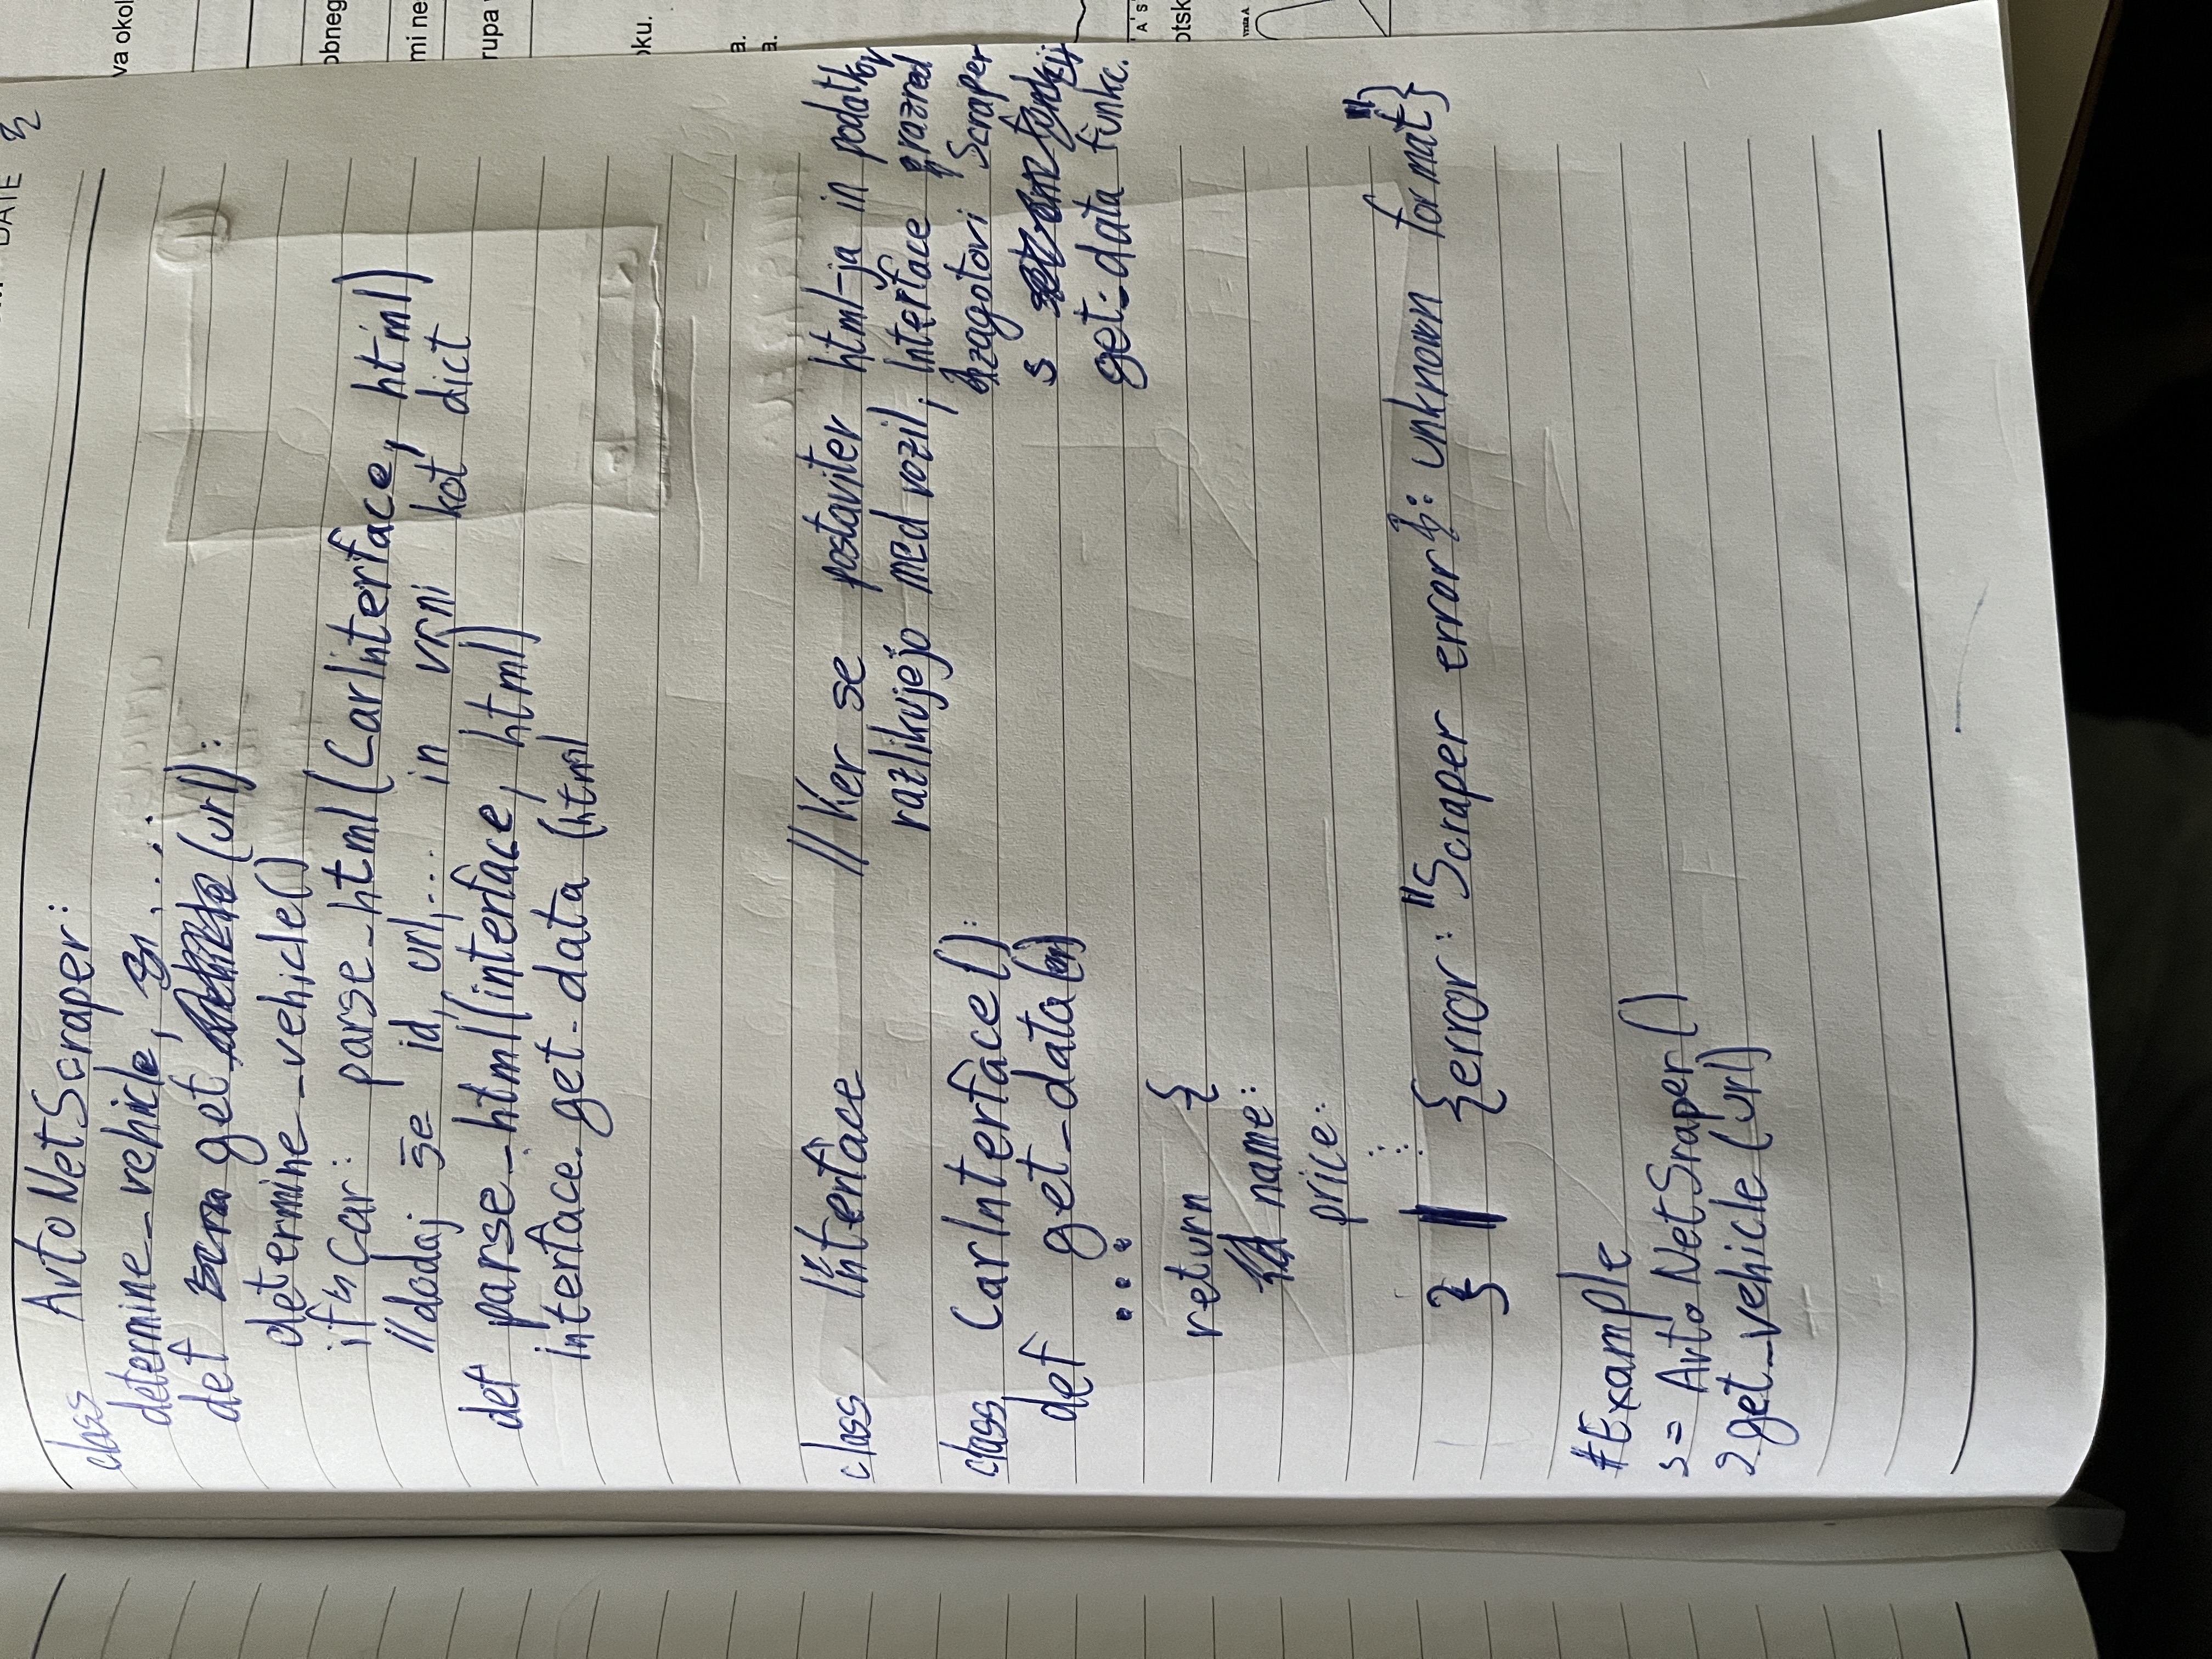 DATE
class AvtoNetScraper:
determine_vehicle, ....
def get (url):
determine_vehicle()
if Car: parse_html(CarInterface, html)
//dodaj še id, url,... in vrni kot dict
def parse_html(interface, html)
interface.get_data (html
class Interface
//Ker se postavitev html-ja in podatkov
razlikujejo med vozil, Interface razred
zagotovi Scraper
s
get_data funkc.
class CarInterface():
def get_data
...
return {
name:
price:
} | {error: "Scraper error: unknown format"}
#Example
s = AvtoNetSraper()
get_vehicle (url)
va okol
obneg
mi ne
rupa
oku.
a.
a.
A S
otsk
vrsta A